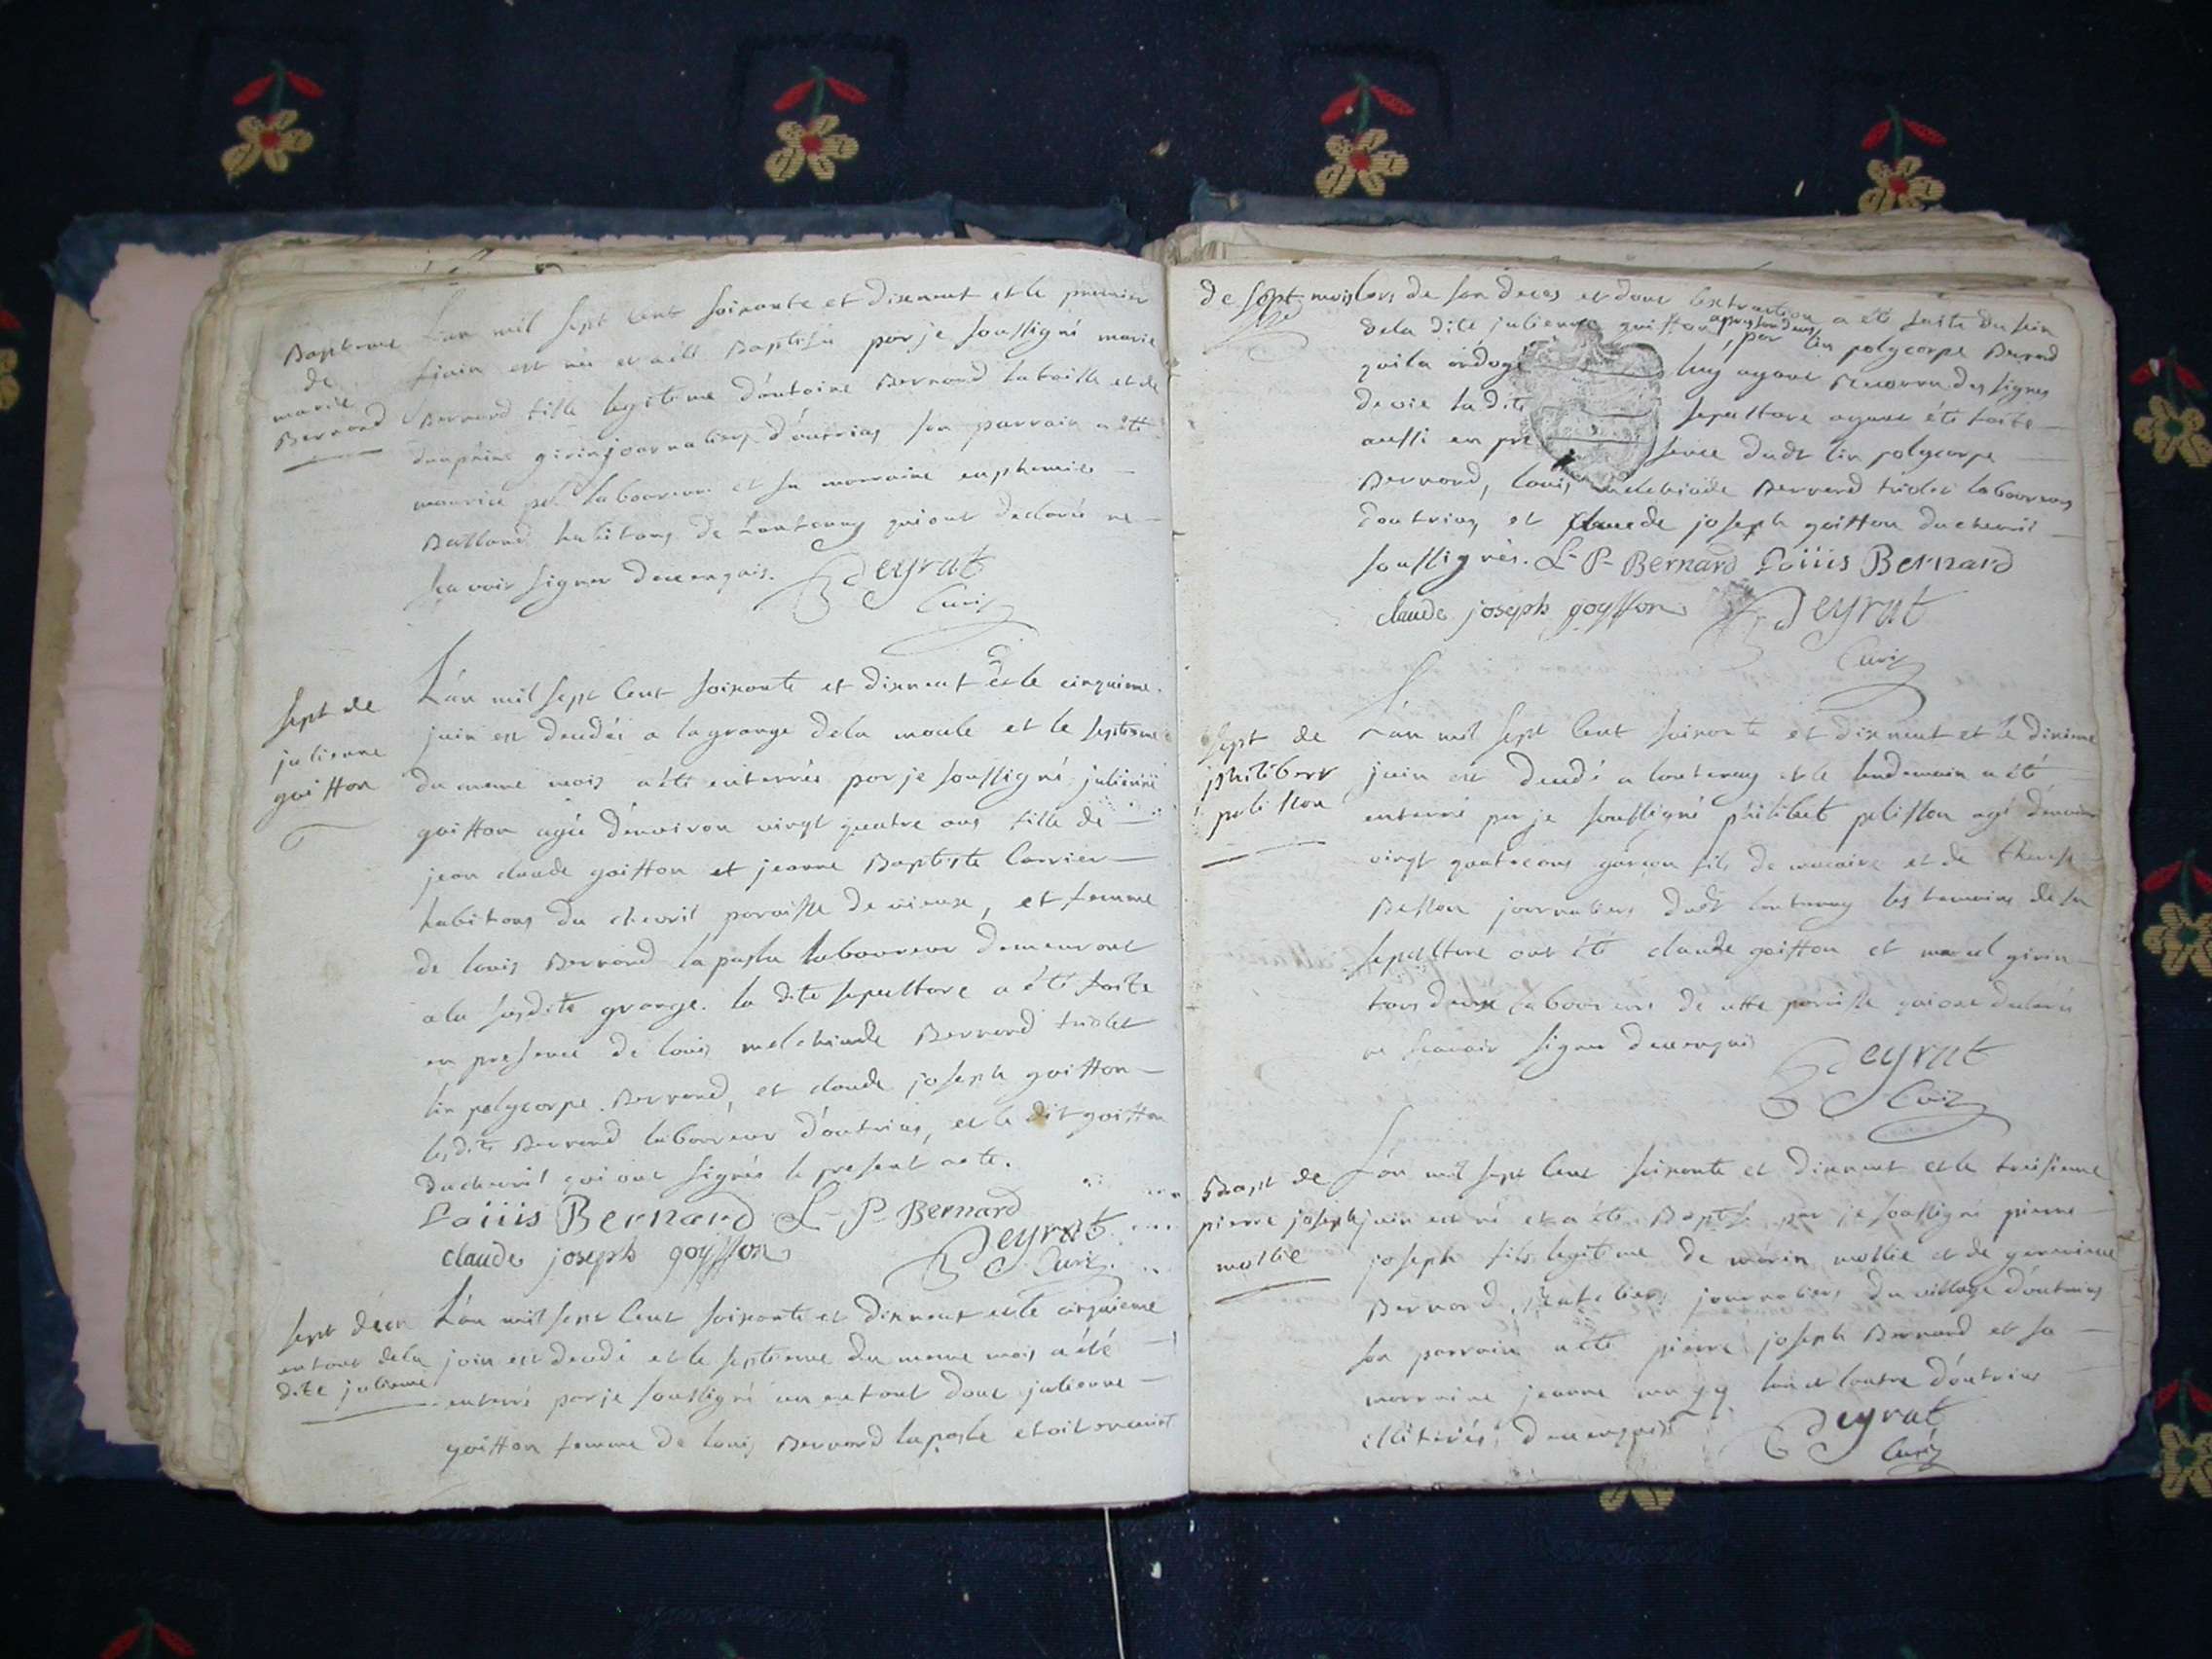 Baptême
de
marie
Bernard
L'an mil sept cent soixante et dixneuf et le premier
juin est née et a été Baptisée par je soussigné marie
Bernard fille legitime d'antoine Bernard et de
girin journaliers d'outrias son parrain a été
maurice laboureur et sa marraine euphemie
Balland habitans de lantenay qui ont declarés ne
sçavoir signer de ce enquis. Deyrat
Curé
sept de
julienne
goiffon
L'an mil sept cent soixante et dixneuf et le cinquieme
juin est decedée a la grange dela moule et le septieme
du meme mois a été enterrée par je soussigné julienne
goiffon agée d'environ vingt quatre ans fille de
jean claude goiffon et jeanne Baptiste Carrier
habitans du chevril paroisse de vieuxe, et femme
de louis Bernard la pasla laboureur demeurant
a la susdite grange. la dite sepulture a été faite
en presence de louis melchiade Bernard triolet
lin polycarpe Bernard, et claude joseph goiffon
lesdits Bernard laboureur d'outrias, et le dit goiffon
du chevril qui ont signés le present acte.
Loüis Bernard L-P-Bernard
claude joseph goyffon Deyrat
Curé
sept d'un
enfant dela
dite julienne
L'an mil sept cent soixante et dixneuf et le cinquieme
juin est decedé et le septieme du meme mois a été
enterré par je soussigné un enfant dont julienne
goiffon femme de louis Bernard la pasle etoit enceinte
de sept mois lors de son deces et dont l'extraction a été faite du sein
dela dite julienne goiffon apres son deces, par lin polycarpe Bernard
qui l'a ondoyé luy ayant reconnu des signes
de vie la dite sepulture ayant été faite
aussi en presence dudt lin polycarpe
Bernard, louis melchiade Bernard triolet laboureurs
d'outrias, et claude joseph goiffon du chevril
soussignés. L-P-Bernard Loüis Bernard
claude joseph goyffon Deyrat
Curé
sept de
philibert
pelisson
L'an mil sept cent soixante et dixneuf et le dixieme
juin est decedé a lantenay et le lendemain a été
enterré par je soussigné philibert pelisson agé d'environ
vingt quatre ans garçon fils de macaire et de therese
Besson journaliers dudt lantenay les temoins de sa
sepulture ont été claude goiffon et marcel girin
tous deux laboureurs de cette paroisse qui ont declarés
ne sçavoir signer de ce enquis Deyrat
Curé
Bapt de
pierre joseph
mollie
L'an mil sept cent soixante et dixneuf et le treisieme
juin est né et a été Baptisé par je soussigné pierre
joseph fils legitime de marin mollie et de germaine
Bernard, journaliers du village d'outrias
son parrain a été pierre joseph Bernard et sa
marraine jeanne l'un et l'autre d'outrias
illiterés de ce enquis Deyrat
Curé